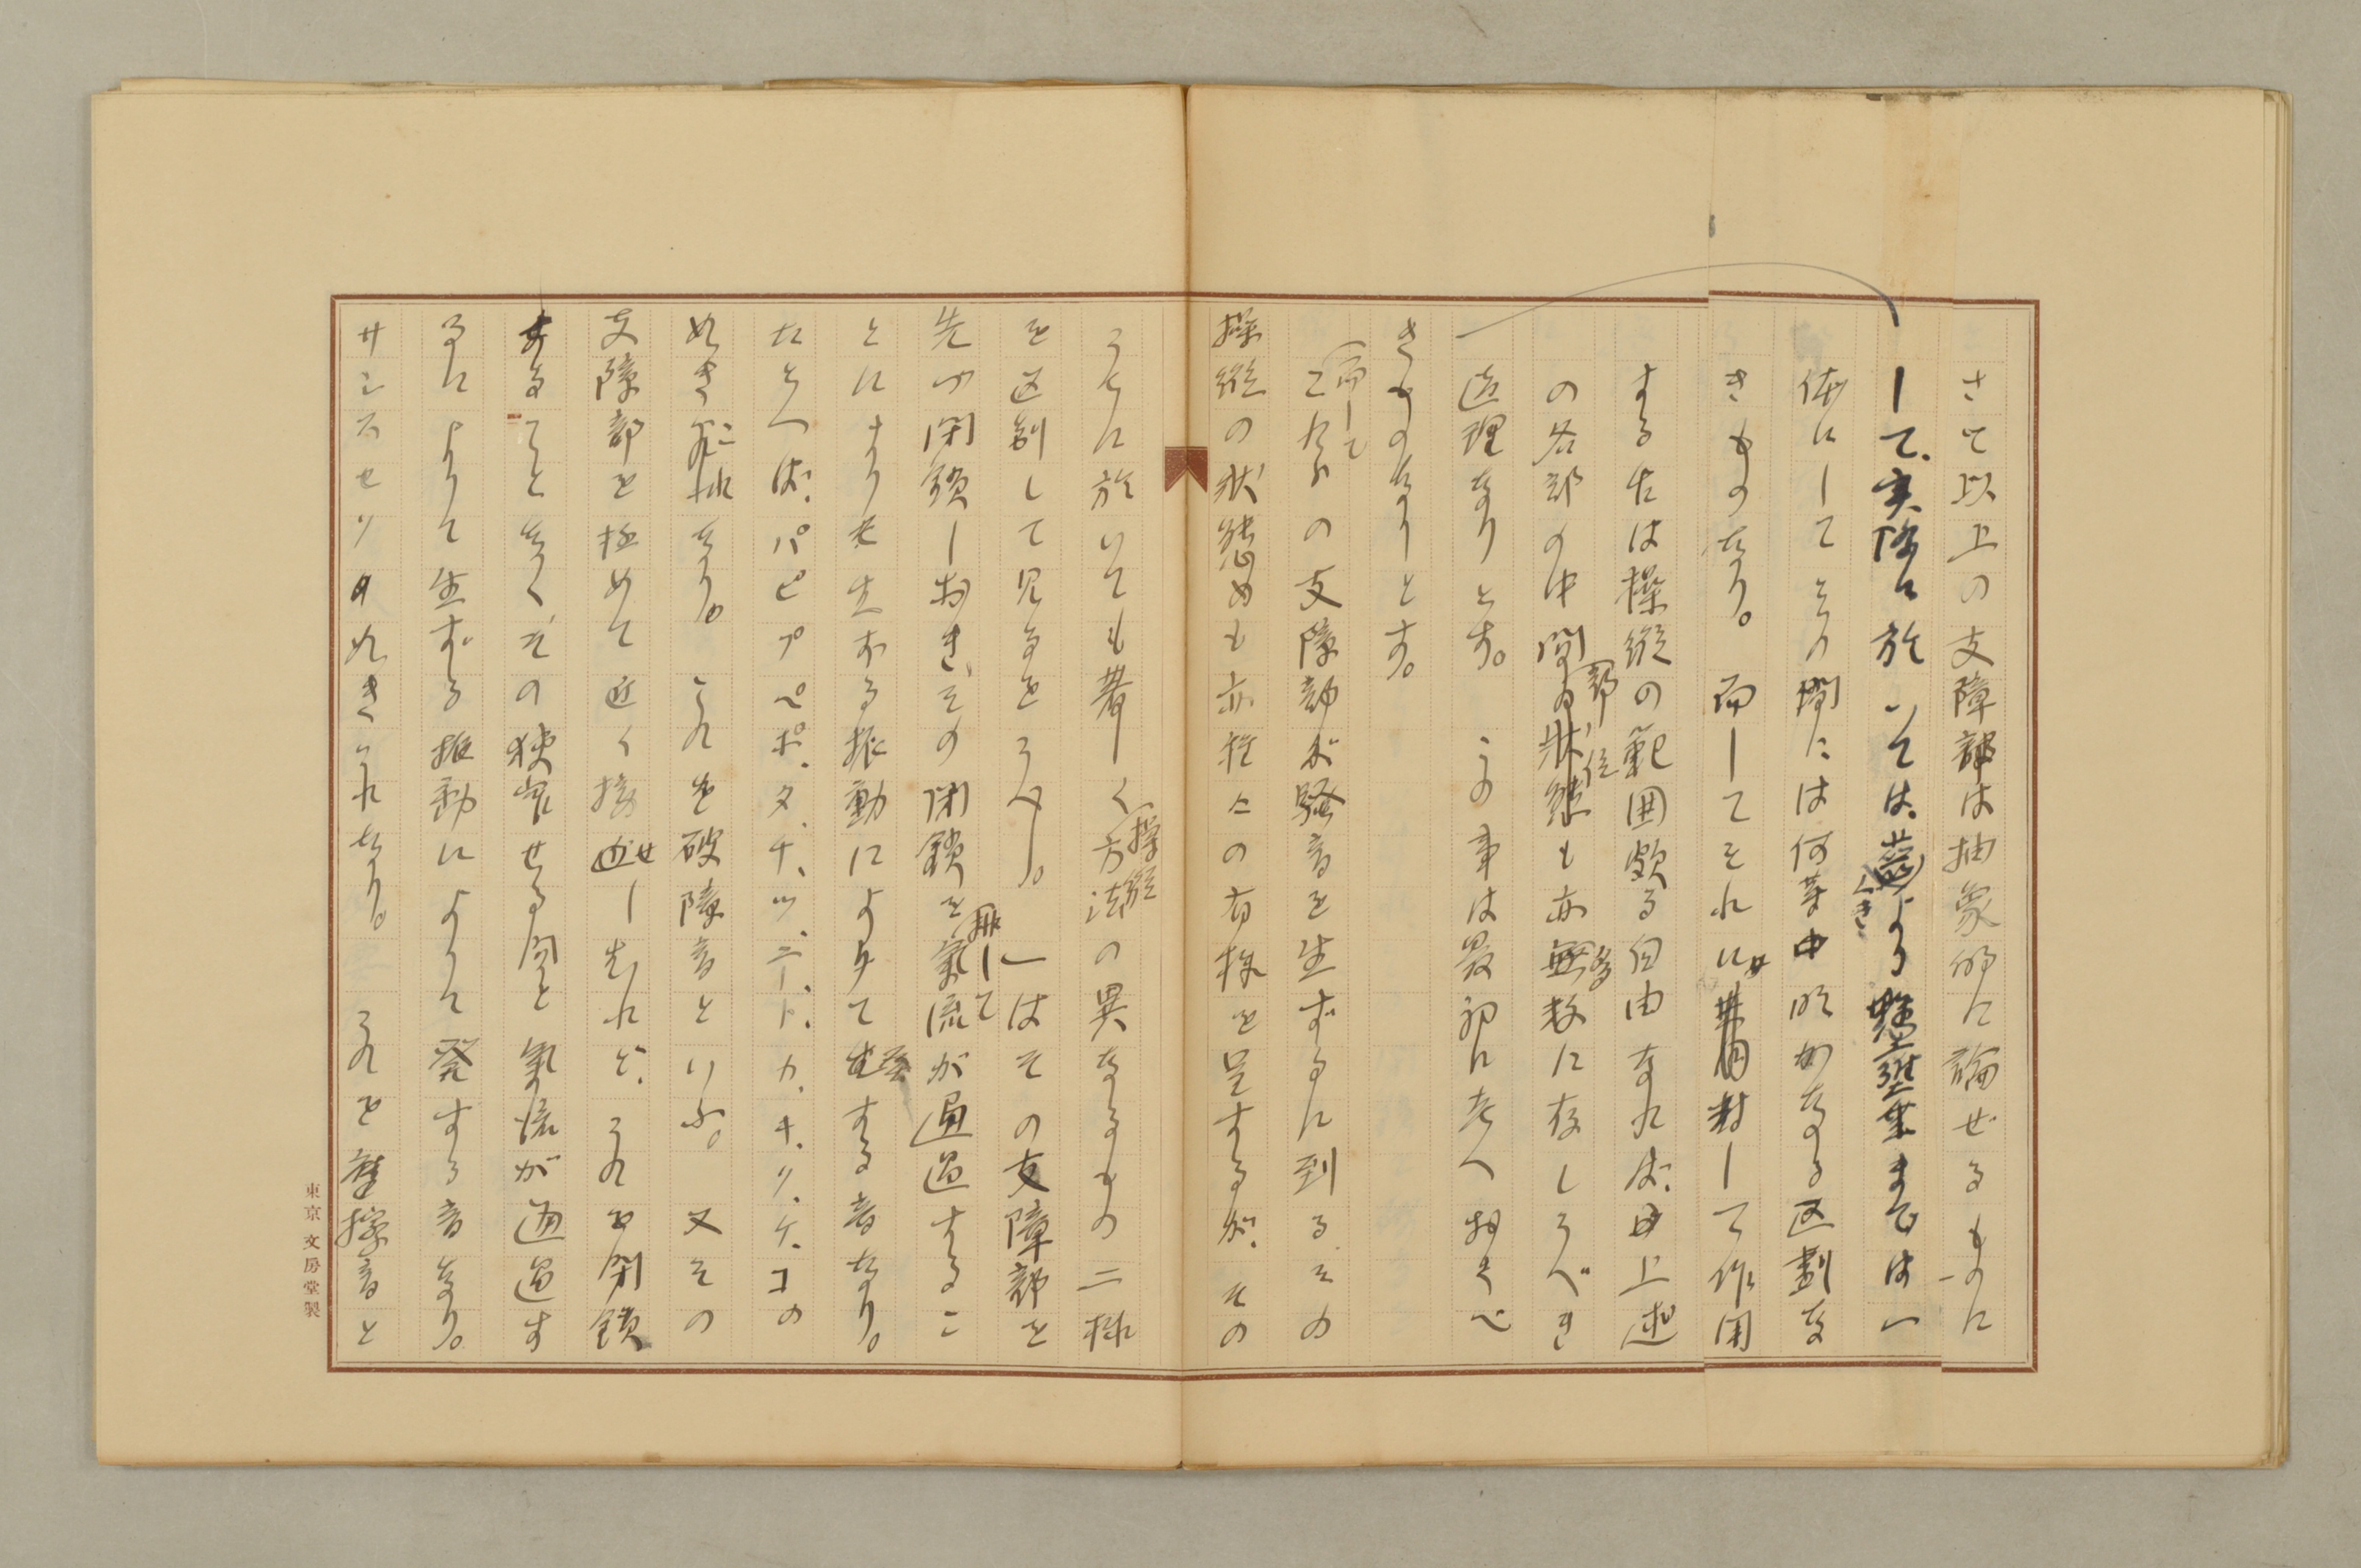 さて以上の支障部は抽象的に論ぜるものに
して、実際に於いては、歯ぐきより懸壅垂までは一
体にしてその間には何等明かなる区劃な
きものなり。而してそれに対して作用
する舌は操縦の範囲頗る自由なれば、上述
の各部の中間部位も亦多数に存しうべき
道理なりとす。この事は最初に考へおくべ
きものなりとす。
(而して
これらの支障部が騒音を生ずるに到るその
操縦の状態も亦種々の有様を呈するが、その
うちに於いても著しく操縦
方法の異なるもの二種
を区別して見るをうべし。一はその支障部を
先づ閉鎖しおき、その閉鎖を排して
気流が通過するこ
とにより生ずる振動によりて発する音なり。
たとへば、パピプペポ、タ、チ、ツ、テ、ト、カ、キ、ク、ケ、コの
如きこれなり。これを破障音といふ。又その
支障部を極めて近く接近せしむれど、これを閉鎖
することなく、その狭窄せる間を気流が通過す
るによりて生ずる振動によりて発する音なり。
サシスセソの如きこれなり。これを摩擦音と
東京 文房堂製